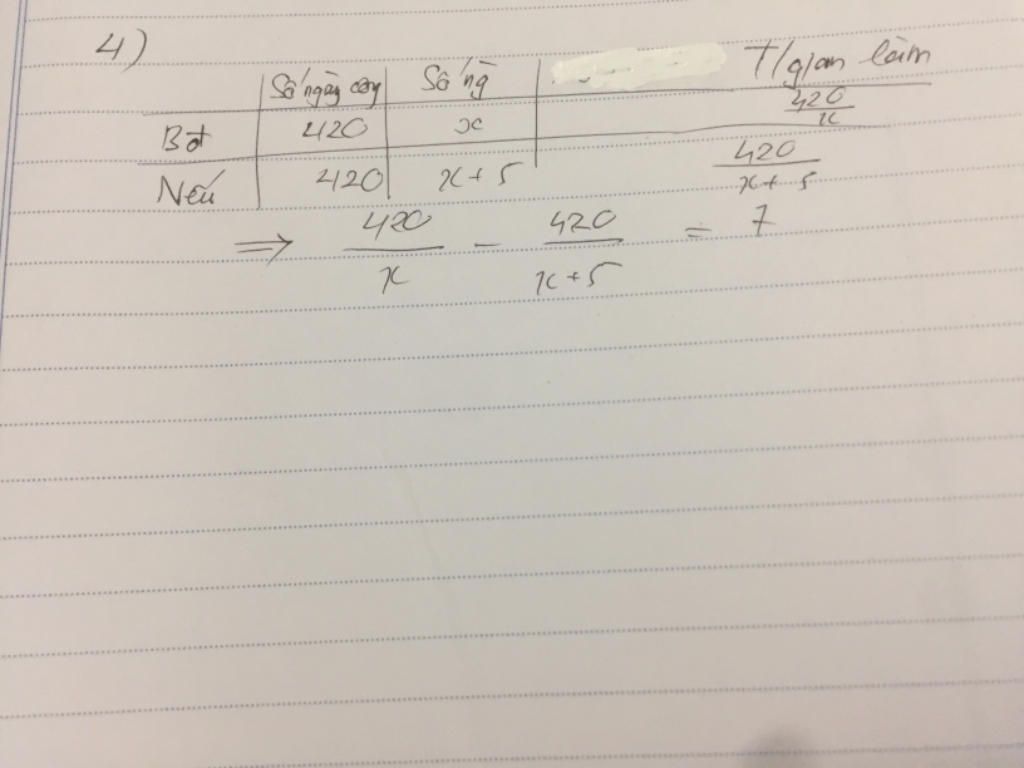 4)
Số ngày công Số ng T/gian làm
Bđ 420 x 420/x
Nếu 420 x + 5 420/x + 5
⇒ 420/x - 420/x + 5 = 7